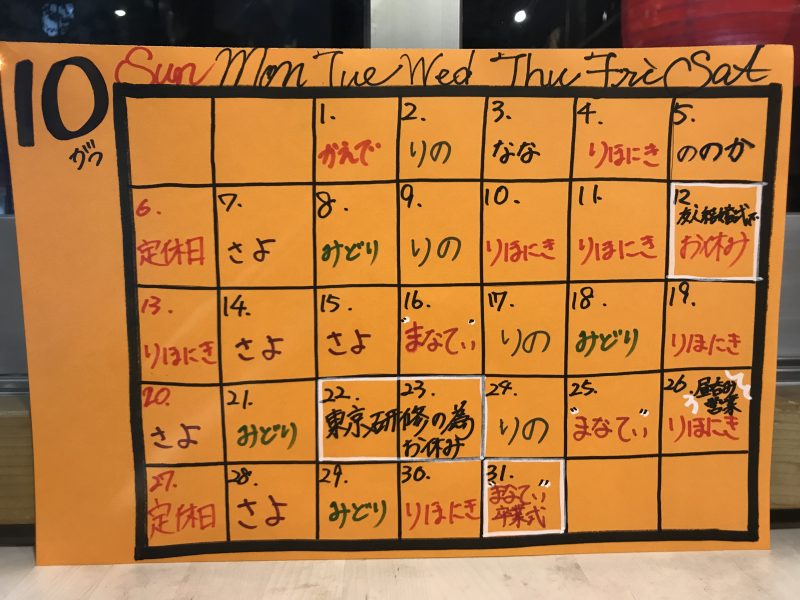 10
がつ
Sun Mon Tue Wed Thu Fri Sat
1. 2. 3. 4. 5.
かえで りの なな りほにき ののか
6. 7. 8. 9. 10. 11. 12
友人結婚式で
定休日 さよ みどり りの りほにき りほにき お休み
13. 14. 15. 16. 17. 18. 19.
りほにき さよ さよ "まなてぃ" りの みどり りほにき
20. 21. 22. 23. 24. 25. 26.
屋台的
営業
さよ みどり 東京研修の為 りの "まなてぃ" りほにき
お休み
27. 28. 29. 30. 31.
定休日 さよ みどり りほにき "まなてぃ"
卒業式